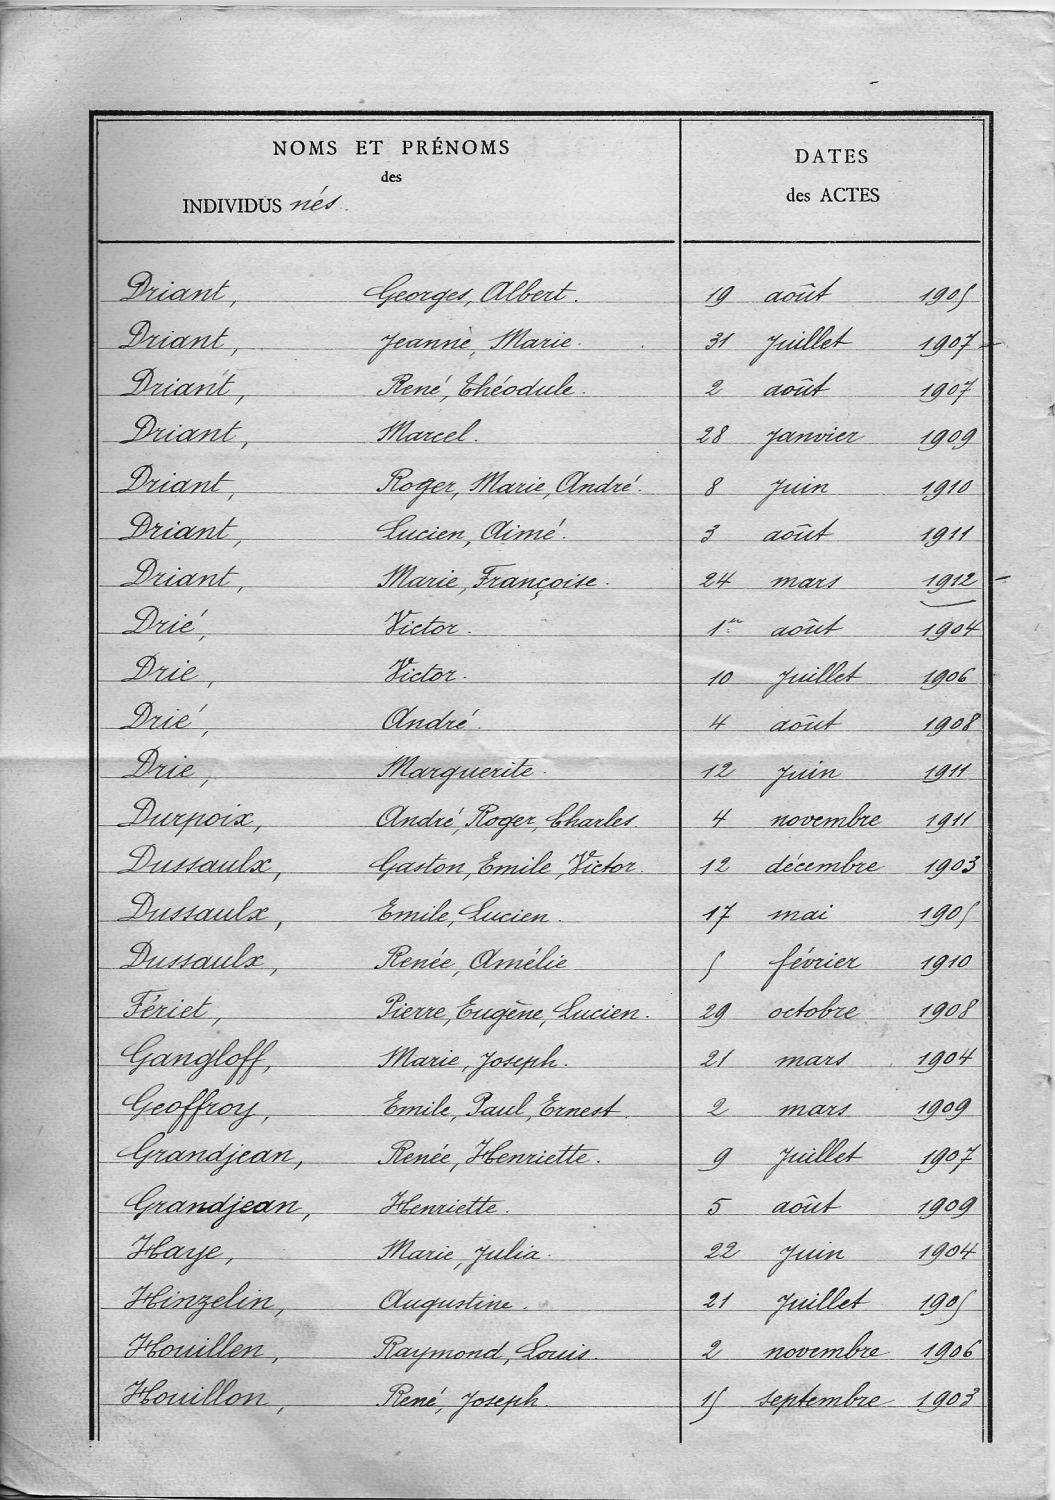 NOMS ET PRÉNOMS
des
INDIVIDUS nés.
DATES
des ACTES
Driant, Georges, Albert. 19 août 1905
Driant, Jeanne, Marie. 31 Juillet 1907
Driant, René, Théodule. 2 août 1907
Driant, Marcel. 28 Janvier 1909
Driant, Roger, Marie, André. 8 Juin 1910
Driant, Lucien, Aimé. 3 août 1911
Driant, Marie, Françoise. 24 mars 1912
Drié, Victor. 1er août 1904
Drie, Victor. 10 Juillet 1906
Drié, André. 4 août 1908
Drie, Marguerite. 12 Juin 1911
Durpoix, André, Roger, Charles. 4 novembre 1911
Dussaulx, Gaston, Emile, Victor. 12 décembre 1903
Dussaulx, Emile, Lucien. 17 mai 1905
Dussaulx, Renée, Amélie 5 février 1910
Fériet, Pierre, Eugène, Lucien. 29 octobre 1908
Gangloff, Marie, Joseph. 21 mars 1904
Geoffroy, Emile, Paul, Ernest. 2 mars 1909
Grandjean, Renée, Henriette. 9 Juillet 1907
Grandjean, Henriette. 5 août 1909
Haye, Marie, Julia. 22 Juin 1904
Hinzelin, Augustine. 21 Juillet 1905
Houillen, Raymond, Louis. 2 novembre 1906
Houillon, René, Joseph. 15 septembre 1903